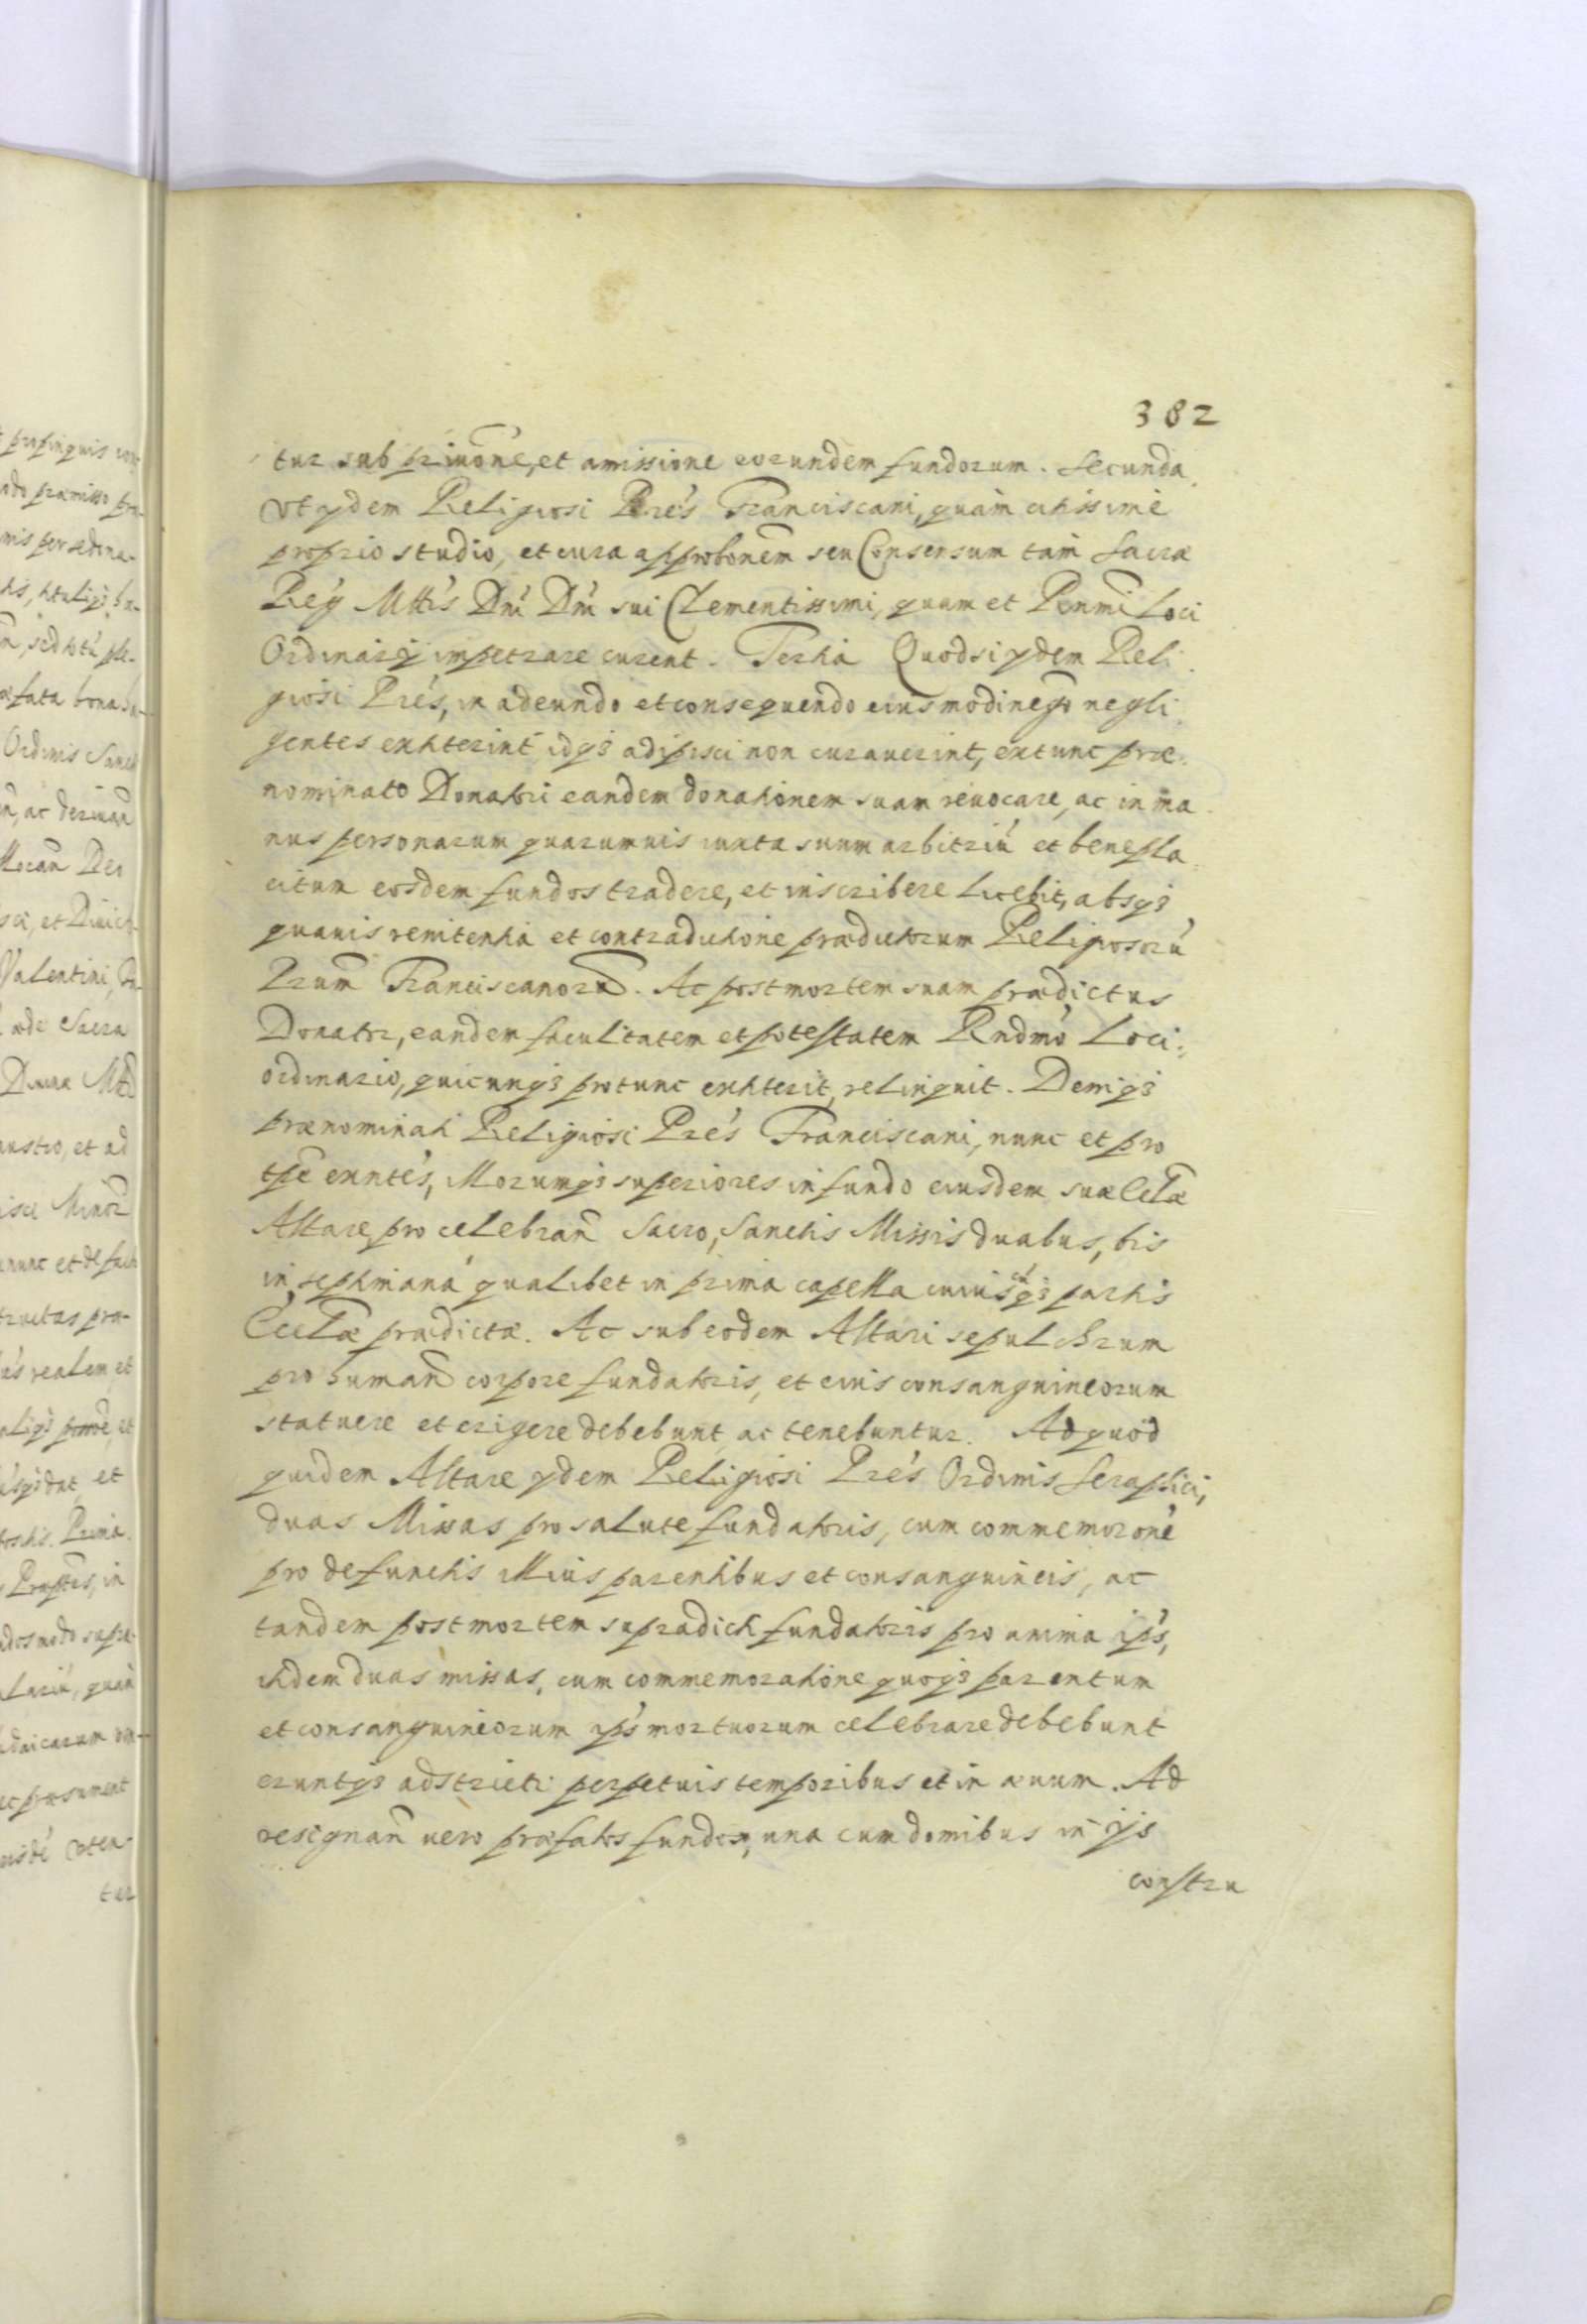 382
tur sub priuõne, et amissione eorundem fundorum. Secunda
Vt ydem Religiosi Prés Franciscani, quàm citissimè
proprio studio, et cura approbonem̃ seu Consensum tam̀ Sacræ
Rég Mttis Dni Dni sui Clementissimi, quam et Rennmi Loci
Ordinarÿ impetrare curent. Tertia Quodsi ydem Reli
giosi Prés, in adeundo et consequendo eiusmodi nego negli
gentes extiterint idq3 adipisci non curauerint, ex tunc præ
nominato Donatori eandem donationem suam reuocare, ac in ma
nus personarum quarumuis iuxta suum arbitriú et benepla
citum eosdem fundos tradere, et inscribere licebit, absq3
quauis renitentia et contradictione prædictorum Religiosorú
Prum̃ Franciscanorũ. Ac post mortem suam prædictus
Donator, eandem facultatem et potestatem Rndmo Loci
ordinario, quicunq3 pro tunc extiterit, relinquit. Deniq3
prænominati Religiosi Prés Franciscani, nunc et pro
tpẽ exntés, Morumq3 superiores in fundo eiusdem suæ Cclæ̃
Altare, pro celebrañ Sacro, Sanctis Missis duabus, bis
in septimaná qualibet in prima capella cuiusq3 partis
Ecclæ̃ prædictæ. Ac sub eodem Altari sepulchrum
pro humand̃ corpore fundatoris, et eius consanguineorum
statuere et erigere debebunt ac tenebuntur. Ad quod
quidem Altare ydem Religiosi Prés Ordinis Seraphici,
duas Missas pro salute fundatoris, cum commemoroné
pro defunctis illius parentibus et consanguineis, ac
tandem post mortem supradicti fundatoris pro anima ipś,
itidem duas missas, cum commemoratione quoq3 parentum
et consanguineorum ipś mortuorum celebrare debebunt
eruntq3 adstricti perpetuis temporibus et in æuum. Ad
resignañ uero præfatos fundos, una cum domibus in ÿs
constru